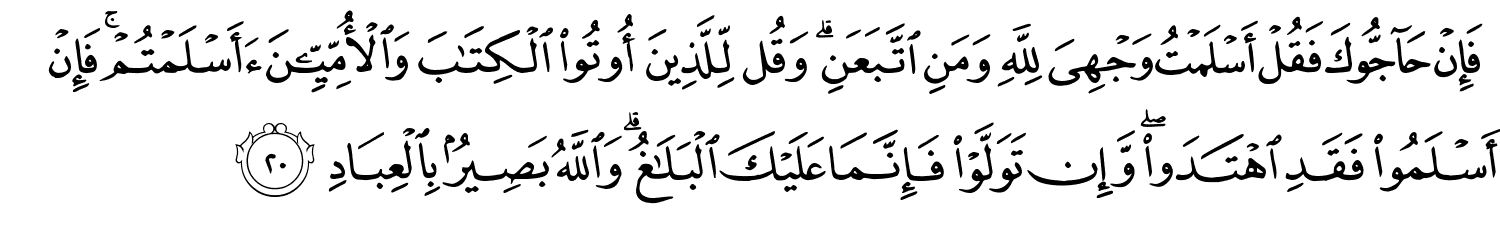 فَإِنۡ حَآجُّوكَ فَقُلۡ أَسۡلَمۡتُ وَجۡهِىَ لِلَّهِ وَمَنِ ٱتَّبَعَنِۗ وَقُل لِّلَّذِينَ أُوتُوا۟ ٱلۡكِتَٰبَ وَٱلۡأُمِّيِّـۧنَ ءَأَسۡلَمۡتُمۡۚ فَإِنۡ
أَسۡلَمُوا۟ فَقَدِ ٱهۡتَدَوا۟ۖ وَّإِن تَوَلَّوۡا۟ فَإِنَّمَا عَلَيۡكَ ٱلۡبَلَٰغُۗ وَٱللَّهُ بَصِيرُۢ بِٱلۡعِبَادِ ٢٠